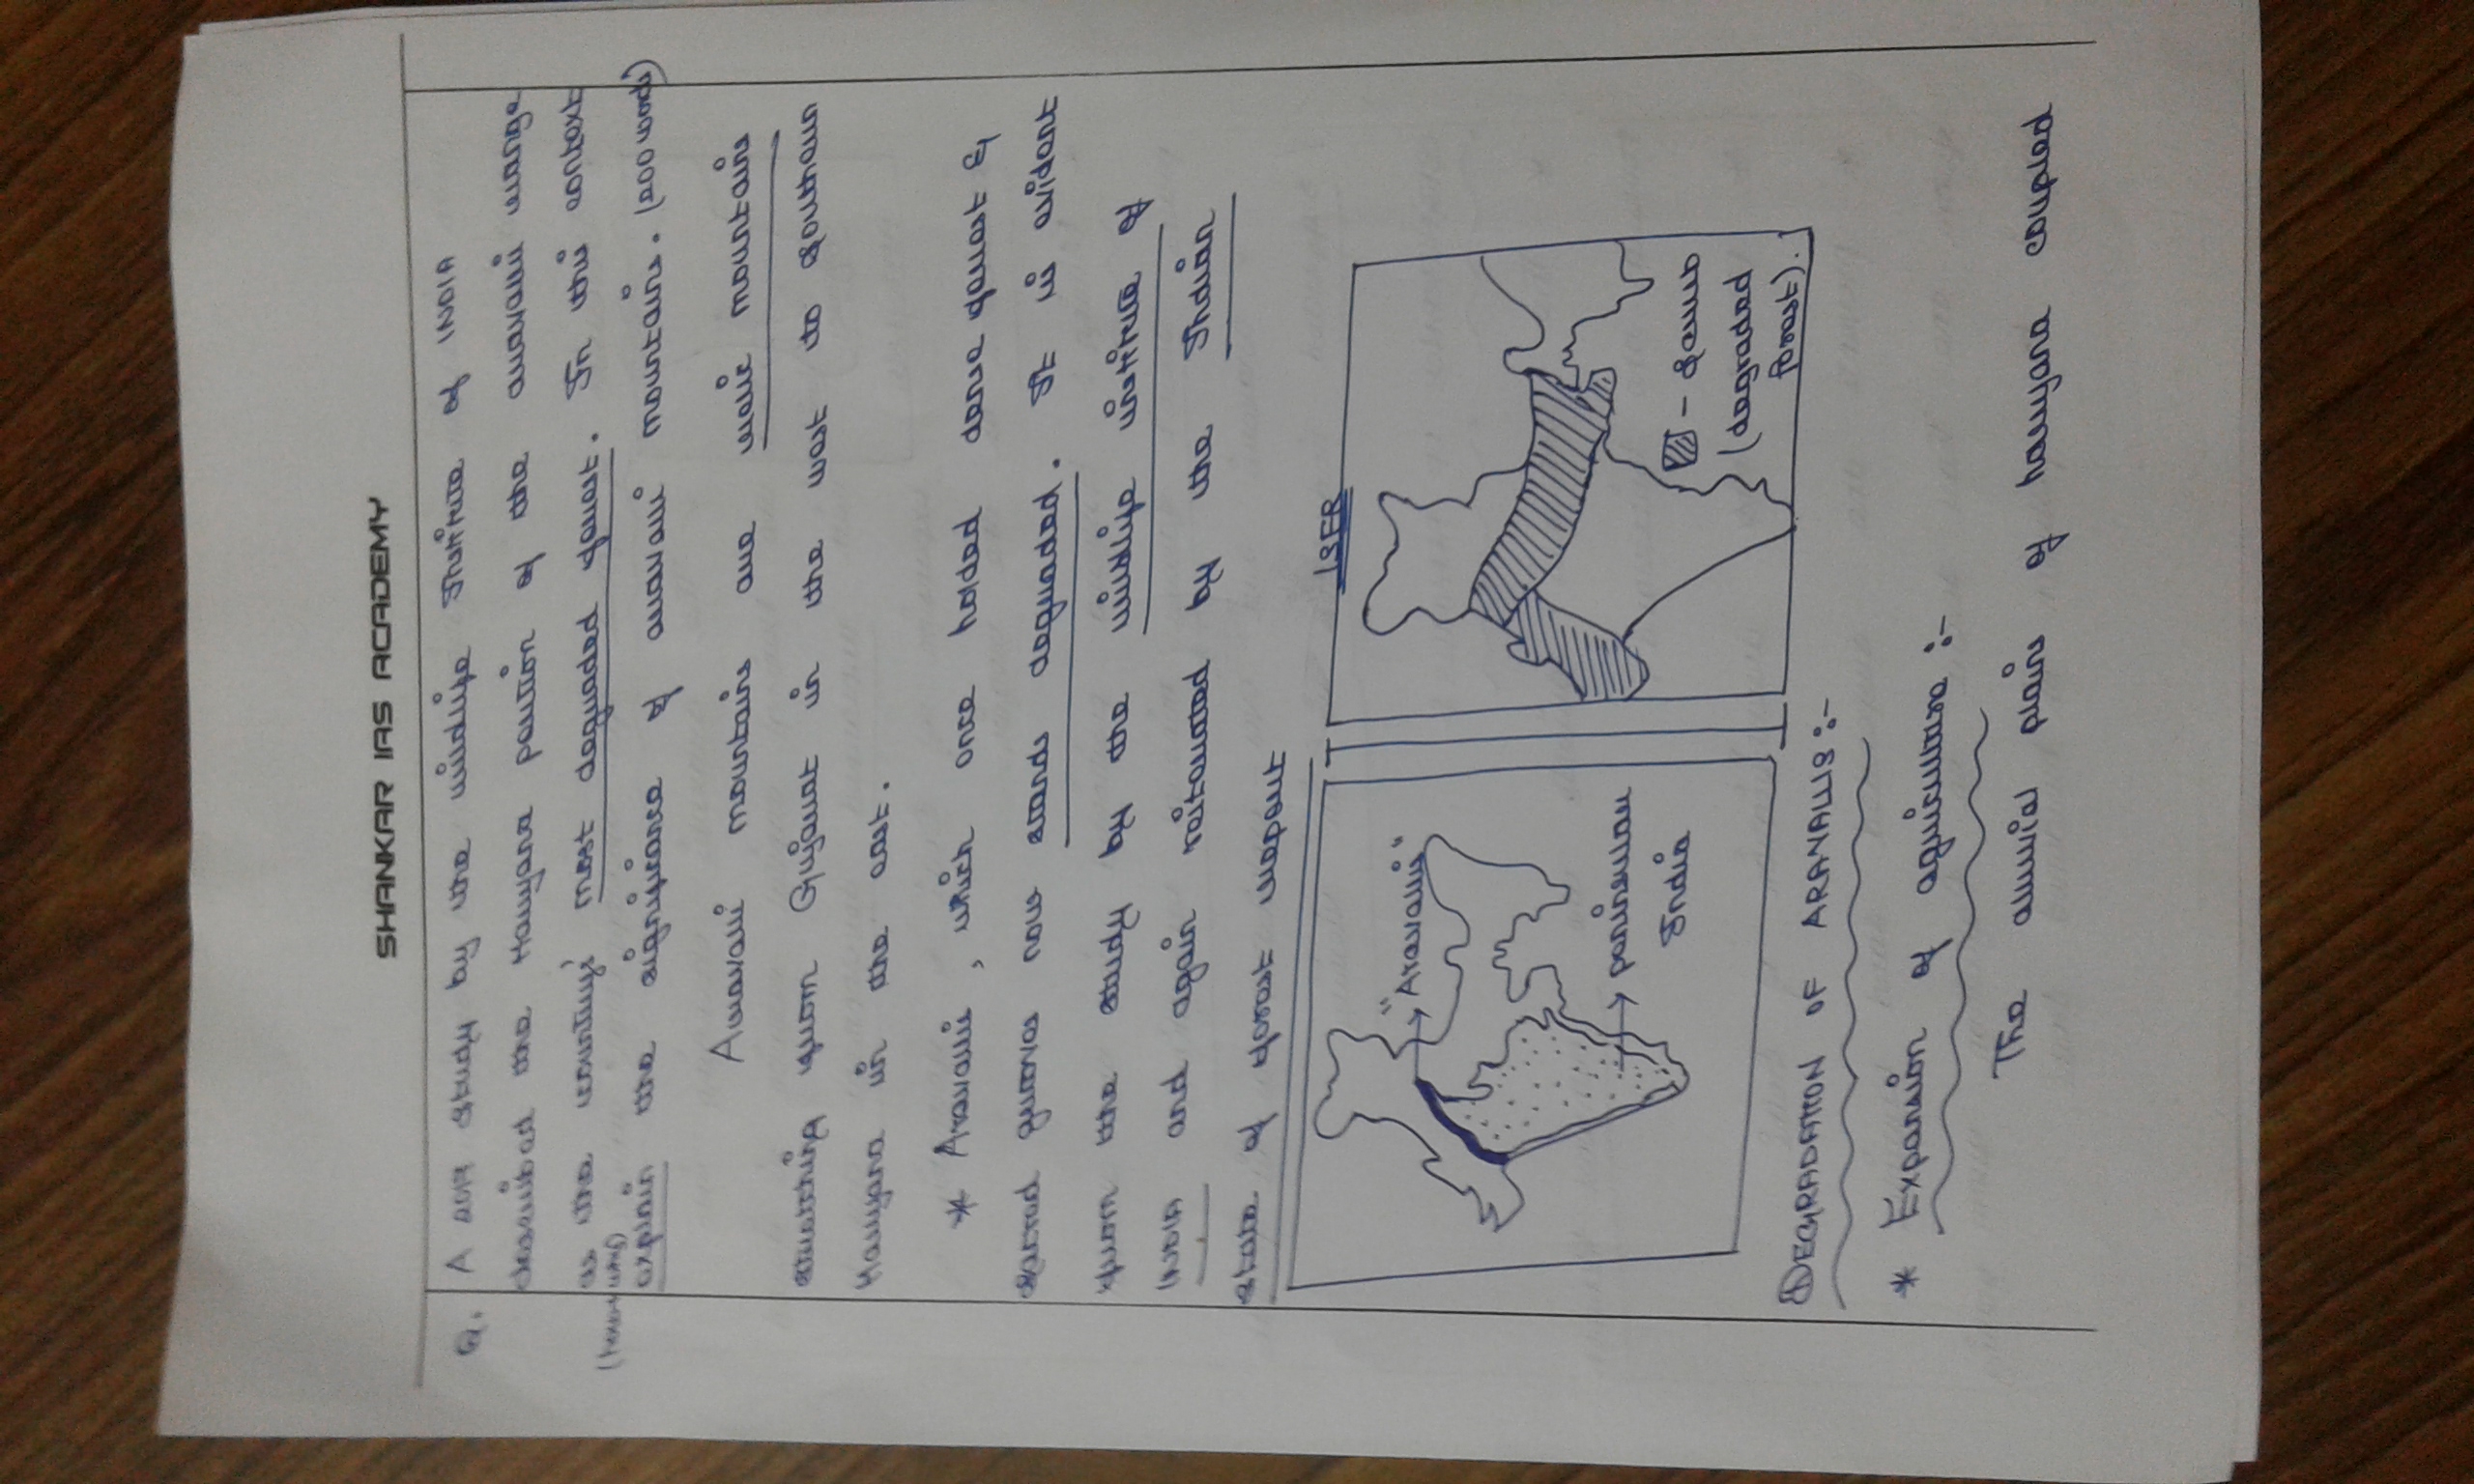 SHANKAR IAS ACADEMY
Q. A 2017 study by the wildlife Institute of INDIA
described the Haryana portion of the aravalli range
as the country's most degraded forest. In this context
explain the significance of aravalli mountains. (200 words)
Aravalli mountains are relic mountains
stretching from Gujarat in the west to southern
Haryana in the east.
* Aravallis, which once holded dense forest &
sacred groves now stands degraded. It is evident
from the study by the wildlife institute of
INDIA and again reiterated by the Indian
state of forest report
ISFR
"Aravallis"
peninsular
India
- scrub
(degraded
forest).
DEGRADATION OF ARAVALLIS :-
* Expansion of agriculture :-
The alluvial plains of haryana coupled